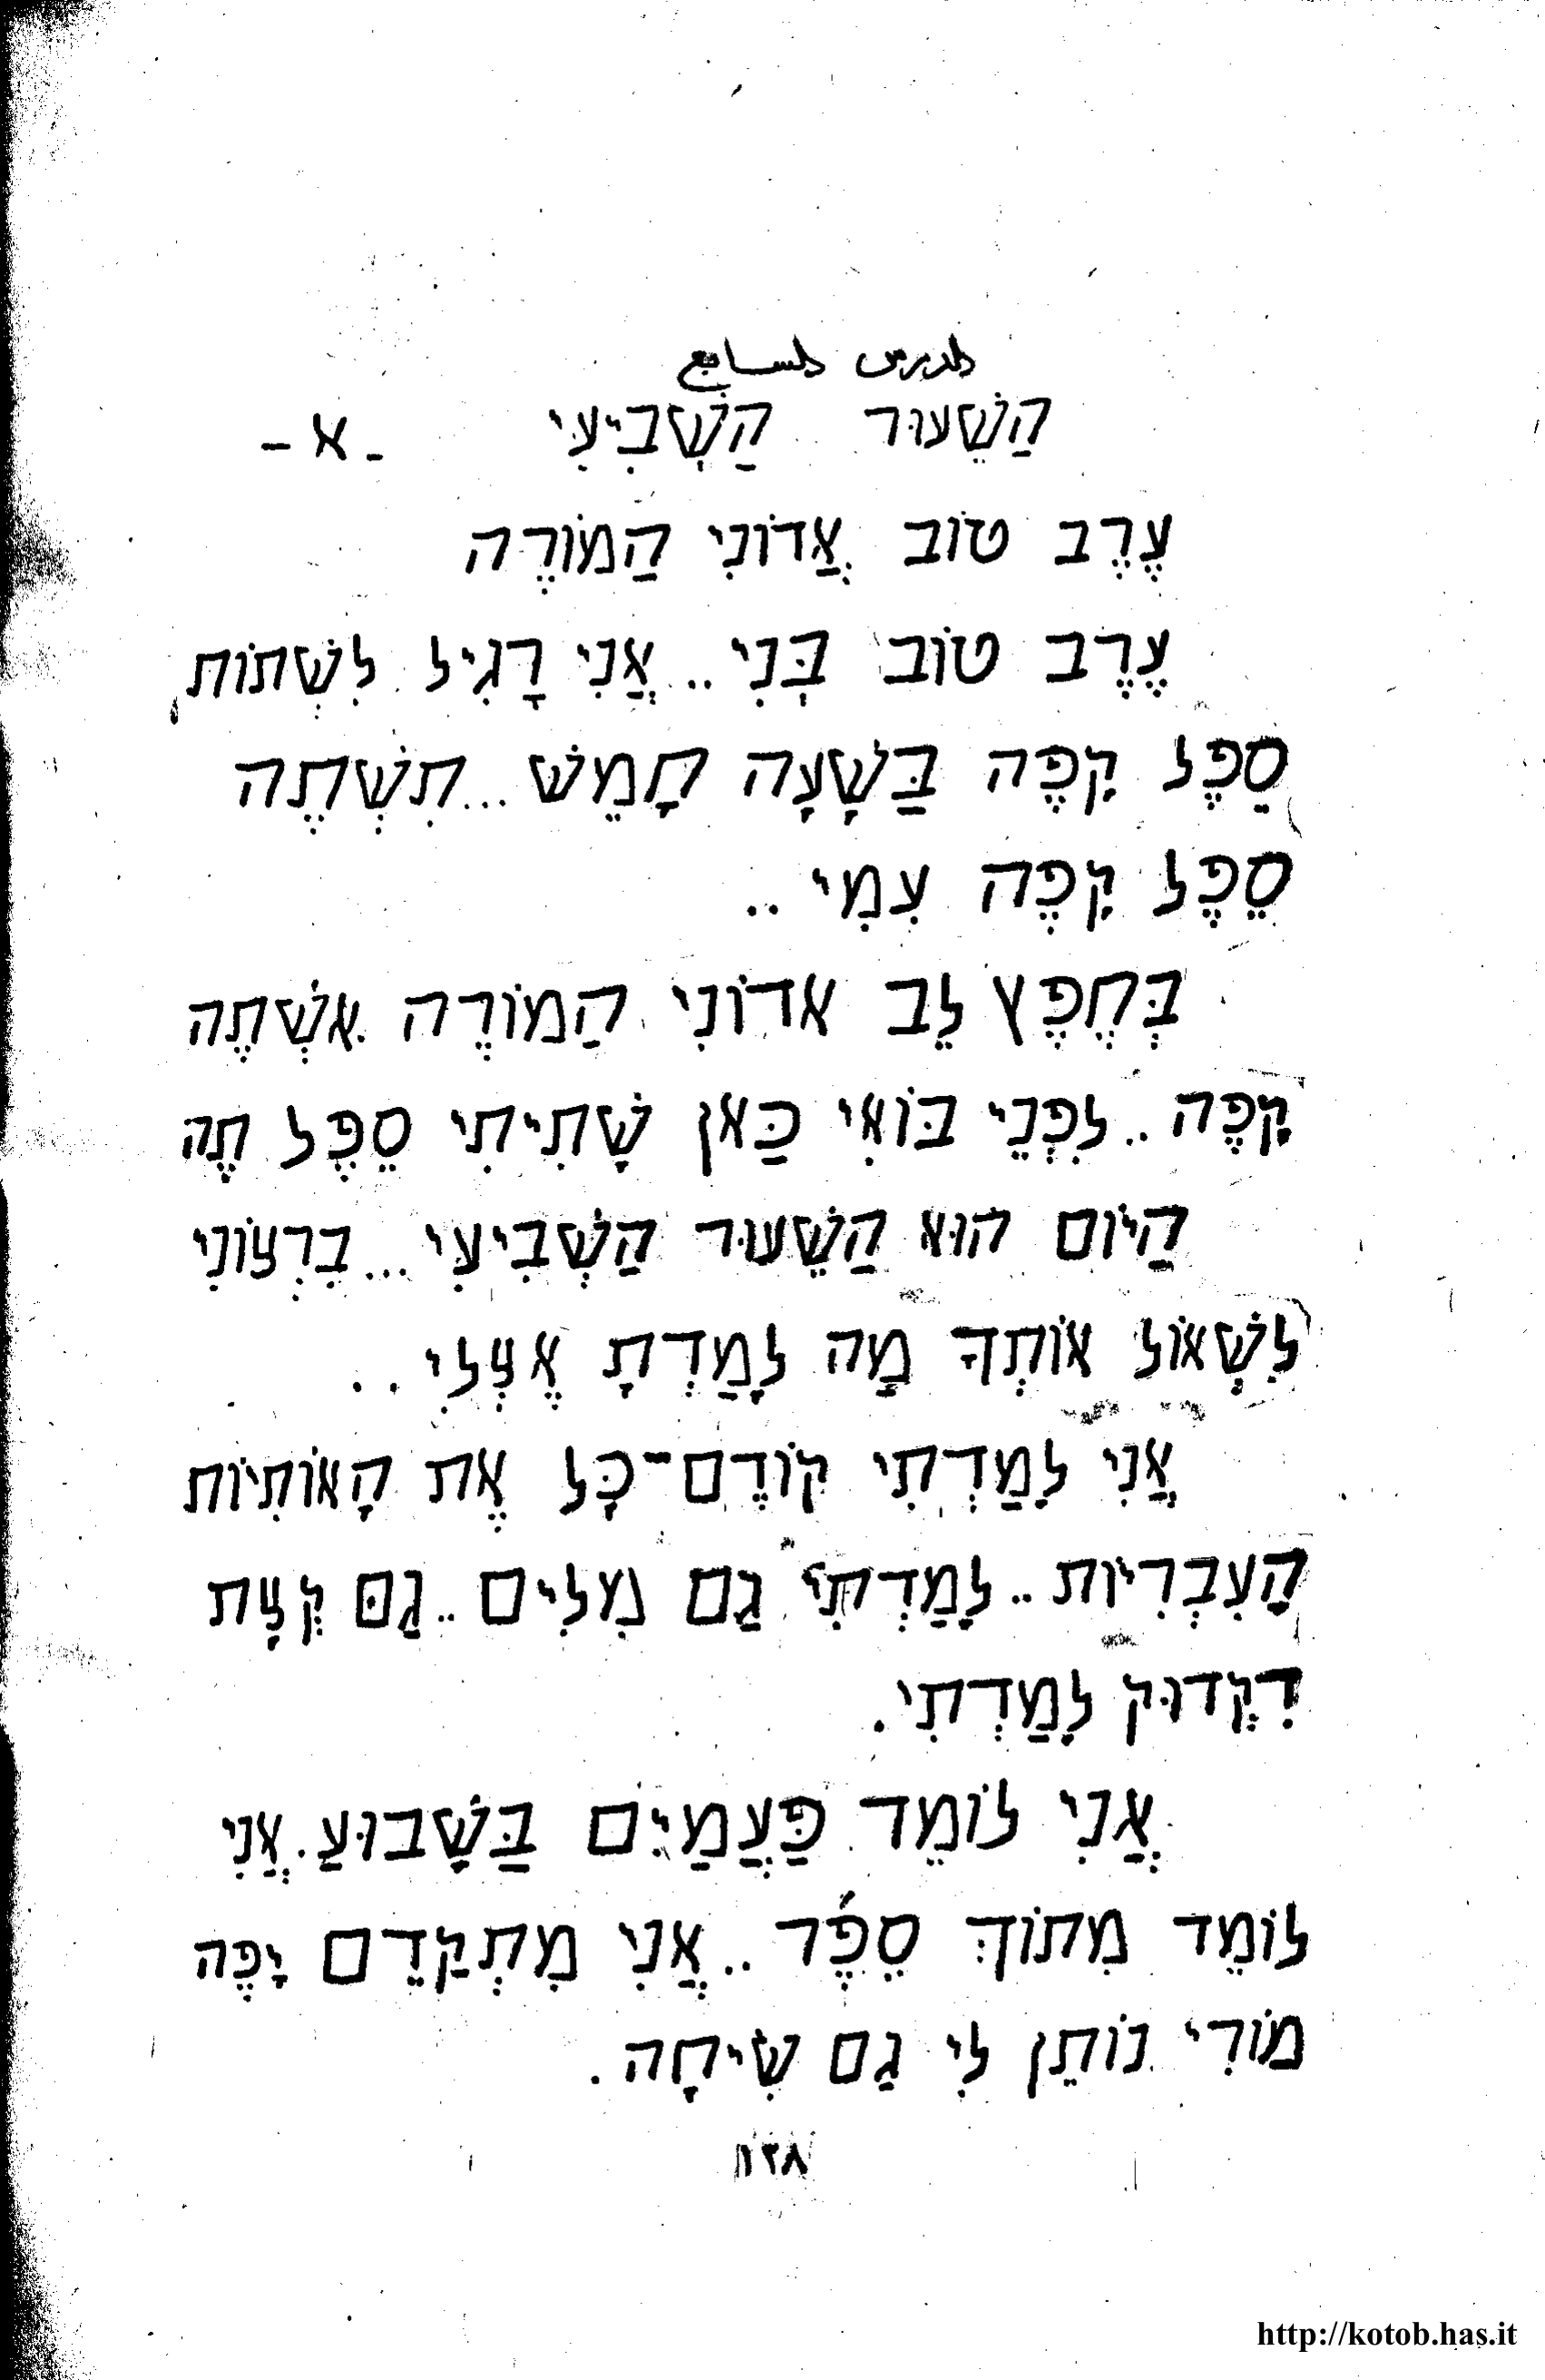 الدرس السابع
הַשֵׁעוּר הַשְׁבִיעִי - א -
עֶרֶב טוֹב אֲדוֹנִי הַמוֹרֶה
עֶרֶב טוֹב בְּנִי .. אֲנִי רָגִיל לִשְׁתוֹת
סֵפֶל קָפֶה בַּשָׁעָה חָמֵשׁ ... תִשְׁתֶה
סֵפֶל קָפֶה עִמִי ..
בְּחֶפֶץ לֵב אדוֹנִי הַמוֹרֶה אִשְׁתֶה
קָפֶה .. לִפְנֵי בּוֹאִי כַּאן שָׁתִיתִי סֵפֶל תֶה
הַיוֹם הוּא הַשֵׁעוּר הַשְׁבִיעִי ... בִרְצוֹנִי
לִשְׁאוֹל אוֹתְךָ מָה לָמַדְתָ אֶצְלִי ..
אֲנִי לָמַדְתִי קוֹדֶם־כָּל אֶת הָאוֹתִיוֹת
הָעִבְרִיוֹת .. לָמַדְתִי גַם מִלִים .. גַם קְצָת
דִקְדוּק לָמַדְתִי .
אֲנִי לוֹמֵד פַּעֲמַיִם בַּשָׁבוּעַ . אֲנִי
לוֹמֵד מִתוֹךְ סֵפֶר .. אֲנִי מִתְקַדֵם יָפֶה
מוֹרִי נוֹתֵן לִי גַם שִׂיחָה .
١٢٨
http://kotob.has.it